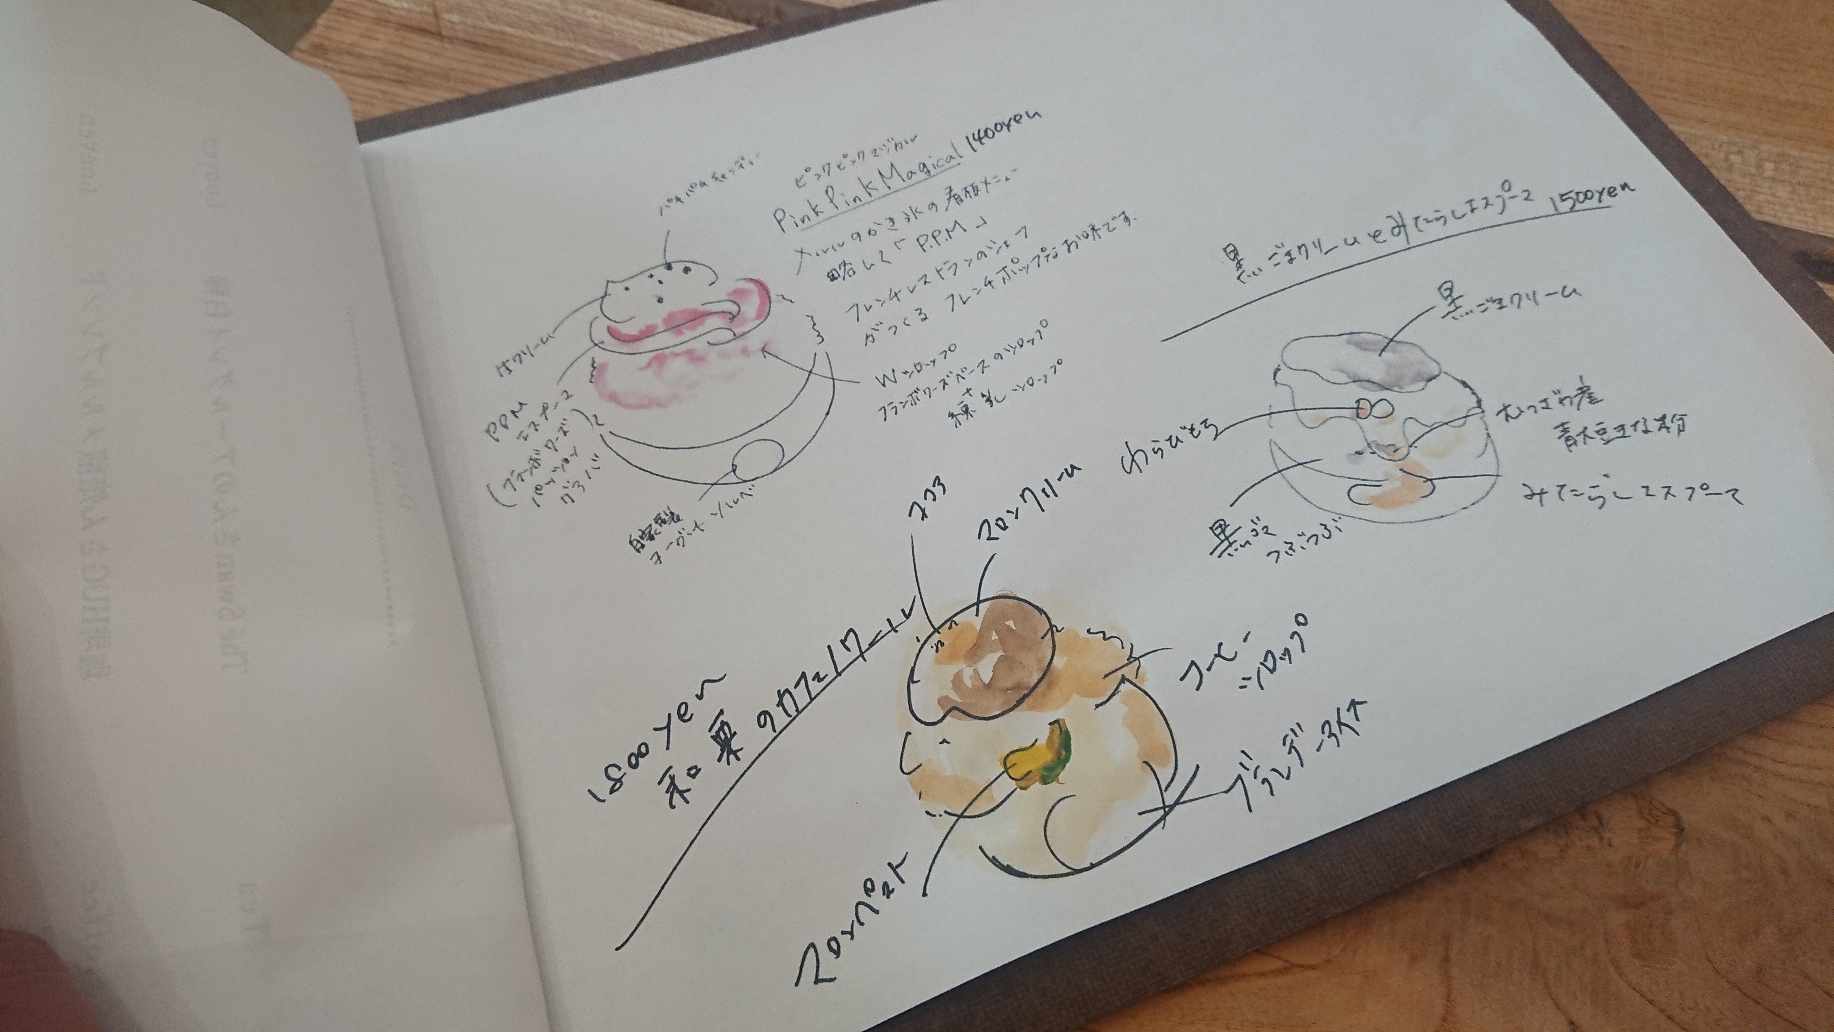 パチパチキャンディー
ピンクピンクマジカル
Pink Pink Magical 1400yen
のかき氷の看板メニュー
略して「P.P.M」
フレンチレストランのシェフ
がつくる フレンチポップなお味です。
Wシロップ
フランボワーズベースのシロップ
+
練乳シロップ
生クリーム
PPM
エスプーマ
(フランボワーズ
パッション
グァバ)
自家製
ヨーグルトソルベ
黒ごまクリームとみたらしエスプーマ 1500yen
黒ごまクリーム
わらびもち
青大豆きな粉
みたらしエスプーマ
黒ごま
つぶつぶ
1800yen
和栗のカフェノワール
ココア
マロンクリーム
コーヒー
シロップ
ブランデーアイス
マロンペースト